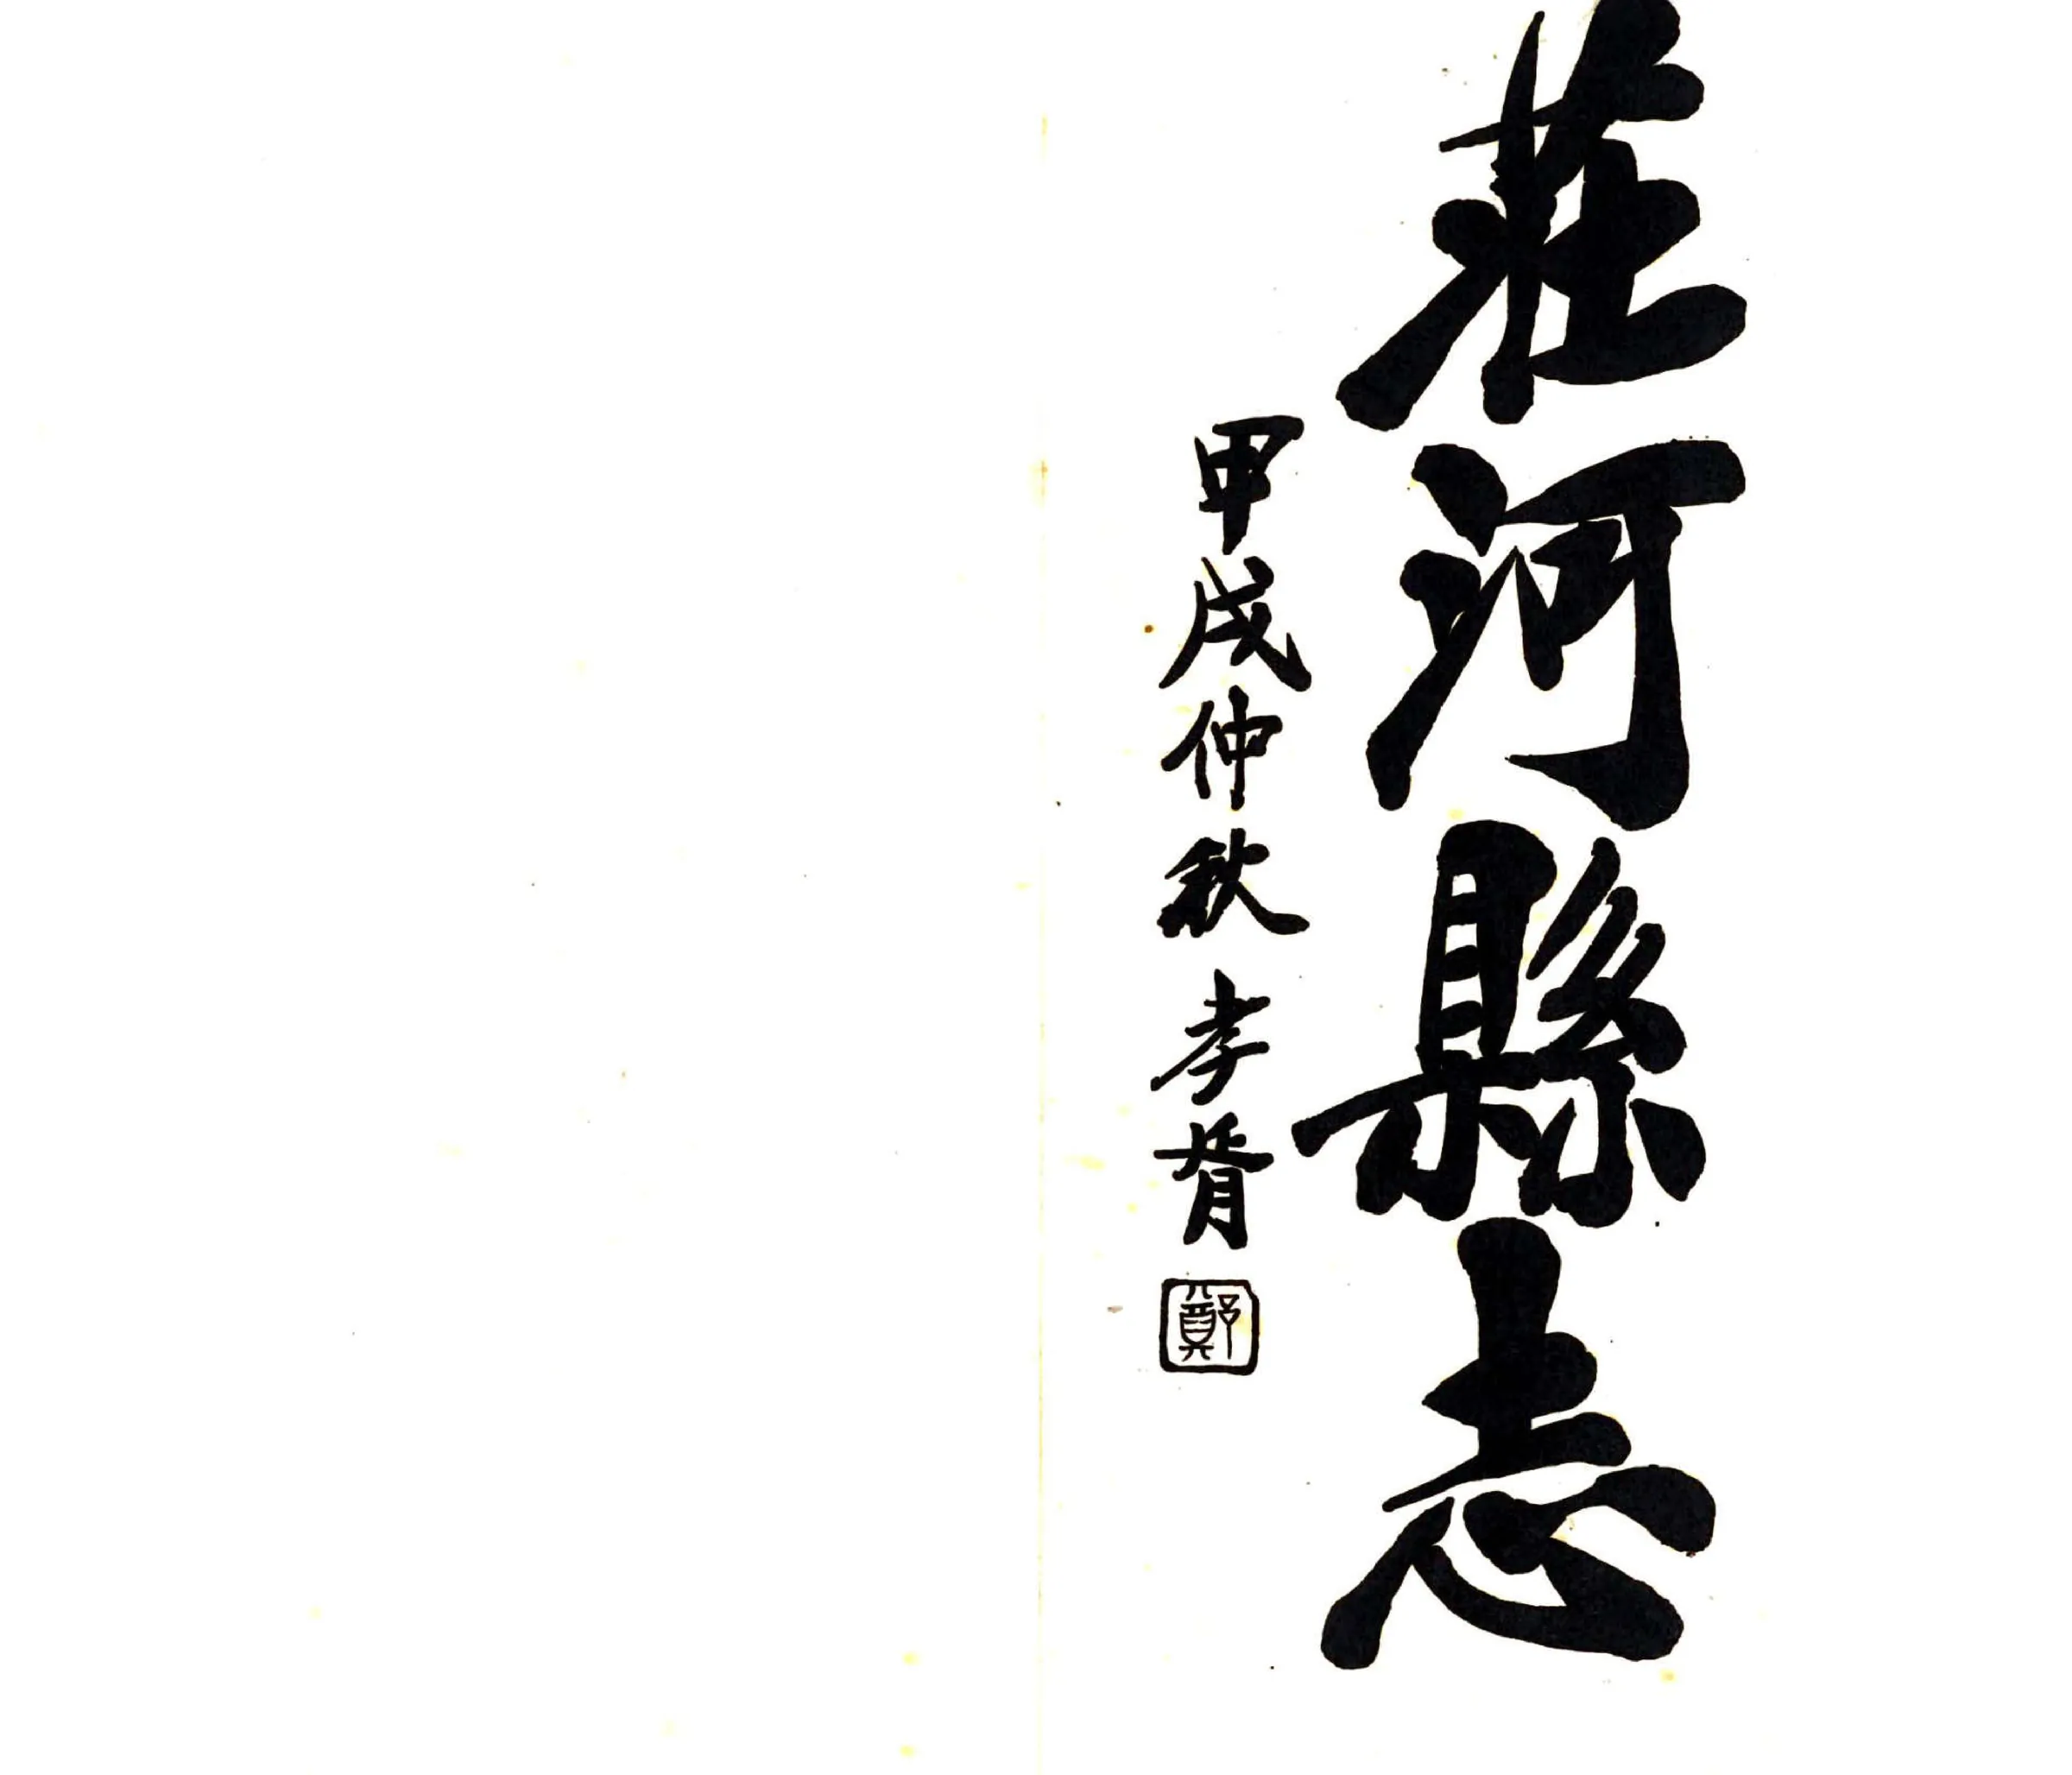 莊河縣志
甲戌仲秋 孝胥
鄭